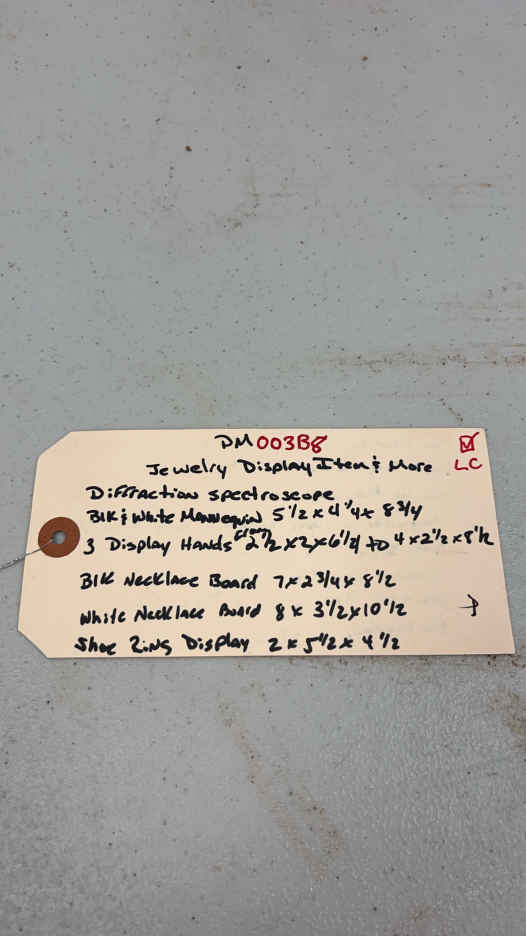 DM003B8
Jewelry Display Item & More LC
Diffraction spectroscope
Blk & White Mannequin 5 1/2 x 4 1/4 x 8 3/4
3 Display Hands from 2 1/2 x 2 x 6 1/2 to 4 x 2 1/2 x 8 1/2
Blk Necklace Board 7 x 2 3/4 x 8 1/2
White Necklace Board 8 x 3 1/2 x 10 1/2
Shoe Ring Display 2 x 5 1/2 x 4 1/2